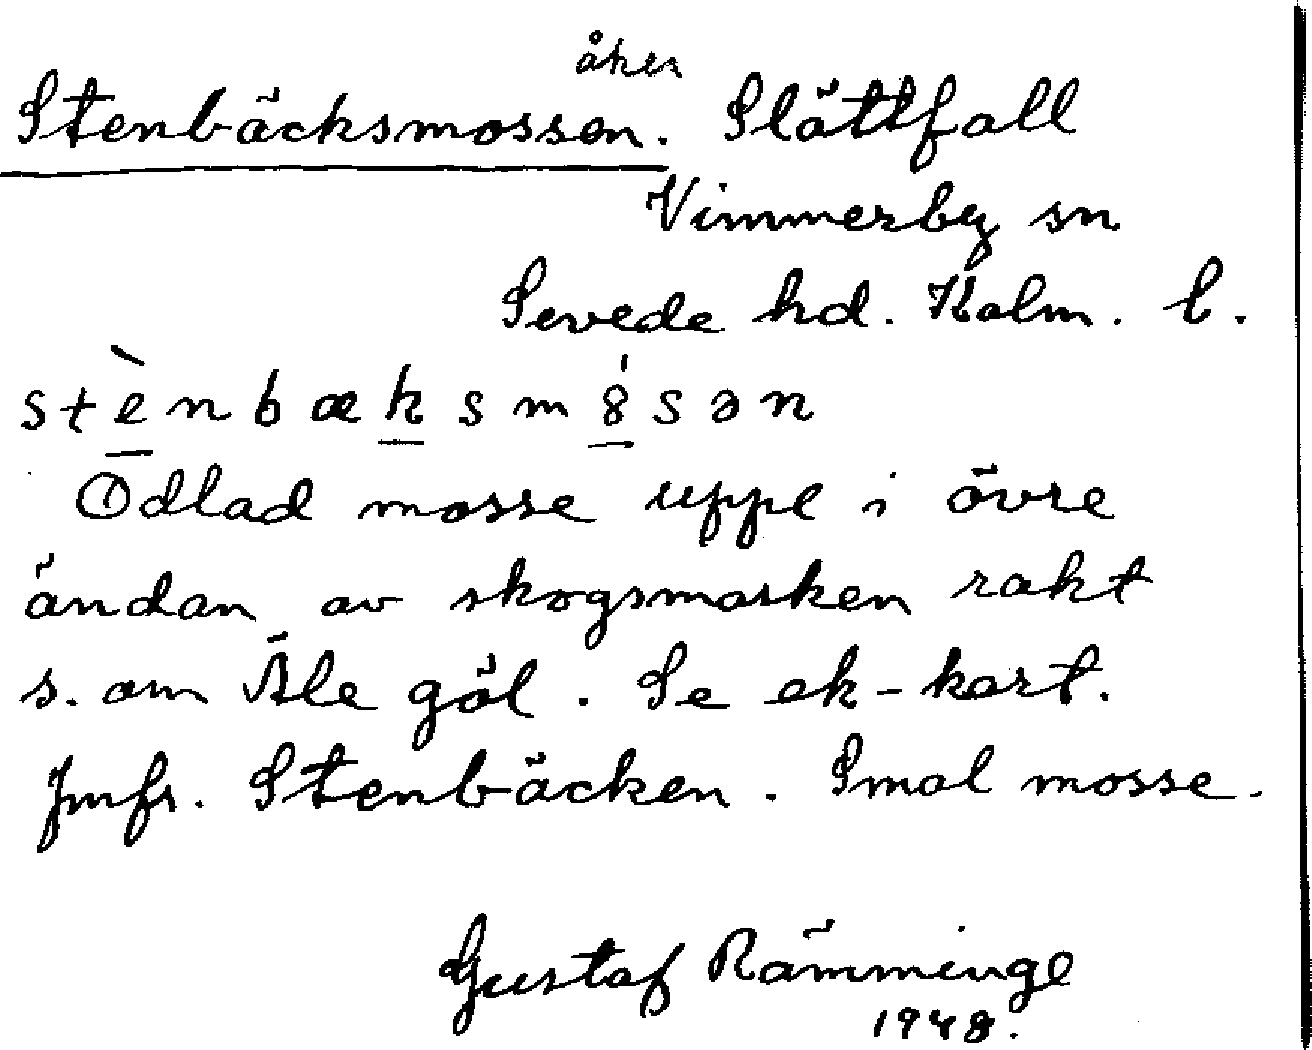 åker
Stenbäcksmossen. Slättfall
Vimmerby sn
Sevede hd. Kalm. l.
stènbæksm8́sən
Odlad mosse uppe i övre
ändan av skogsmarken rakt
s. om Äle göl. Se ek-kart.
Jmfr. Stenbäcken. Smal mosse.
Gustaf Rämminge
1948.